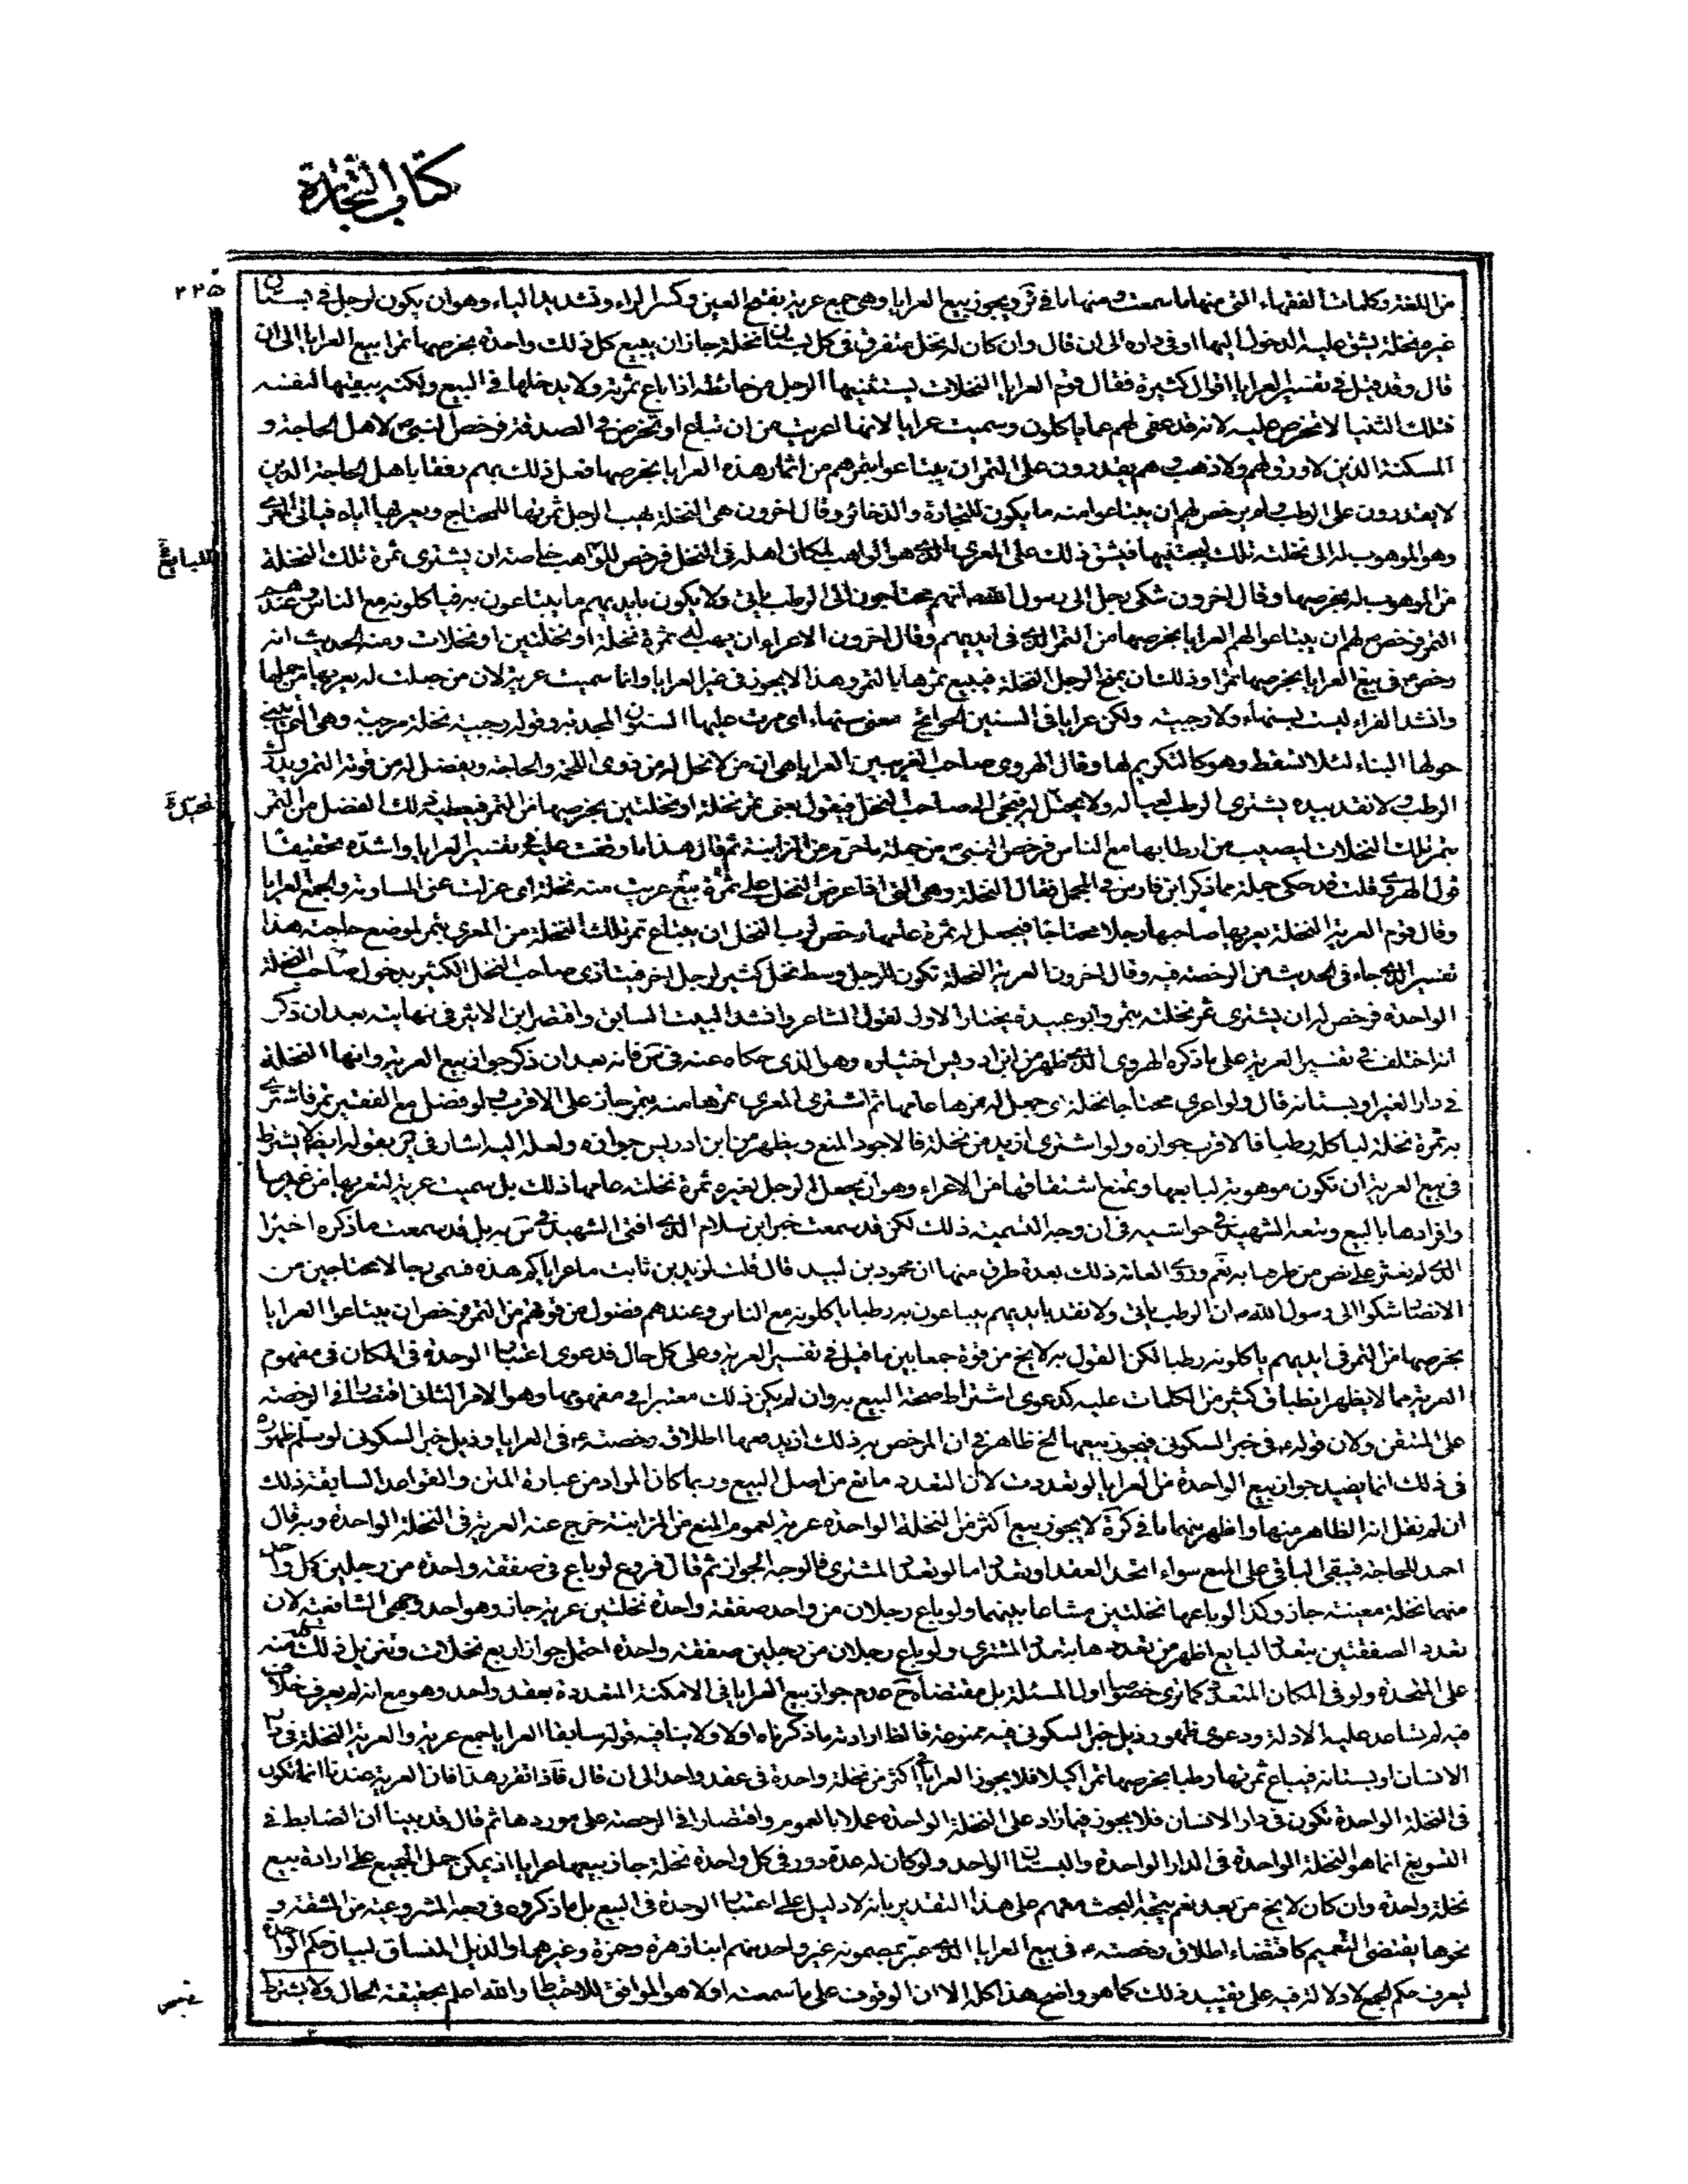 كتاب التجارة
٢٢٥
من اللغة وكلمات الفقهاء التى منها ما سمعت ومنها ما فى ئر ويجوز بيع العرايا وهى جمع عرية بفتح العين وكسر الراء وتشديد الياء وهو ان يكون لرجل فى بستان
غيره نخلة يشق عليه الدخول اليها او فى داره الى ان قال وان كان له نخل متفرق فى كل بستان نخلة جاز ان يبيع كل ذلك واحدة بخرصها تمرا ببيع العرايا الى ان
قال وقد قيل فى تفسير العرايا اقوال كثيرة فقال قوم العرايا النخلات يستثنيها الرجل من حائطه اذا باع ثمرته ولا يدخلها فى البيع ولكنه يبقيها لنفسه
فتلك الثنيا لا تخرص عليه لانه قد عفى لهم عما ياكلون وسميت عرايا لانها اعريت من ان تباع او تخرص فى الصدقة فرخص النبى ص لاهل الحاجة و
المسكنة الذين لا ورق لهم ولا ذهب وهم يقدرون على التمر ان يبتاعوا بتمرهم من اثمار هذه العرايا بخرصها فعل ذلك بهم رفقا باهل الحاجة الذين
لا يقدرون على الرطب ولم يرخص لهم ان يبتاعوا منه ما يكون للتجارة والذخائر وقال اخرون هى النخلة يهب الرجل ثمرتها للمحتاج ويعريها اياه فياتى المعرى
وهو الموهوب له الى نخلته تلك ليجتنيها فيشق ذلك على المعرى الذى هو الواهب لمكان اهله فى النخل فرخص للواهب خاصة ان يشترى ثمرة تلك النخلة
للبايع
من الموهوب له بخرصها وقال اخرون شكى رجل الى رسول الله ص انهم محتاجون الى الرطب ياتى ولا يكون بايديهم ما يبتاعون به فياكلونه مع الناس وعندهم
التمر فرخص لهم ان يبتاعوا لهم العرايا بخرصها من التمر الذى فى ايديهم وقال اخرون الاعراء ان يهب له ثمرة نخلة او نخلتين او نخلات ومنه الحديث انه
رخص فى بيع العرايا بخرصها تمرا وذلك ان يمنح الرجل النخلة فيبيع ثمرها بالتمر وهذا لا يجوز فى غير العرايا وانما سميت عرية لان من جعلت له يعريها من حملها
وانشد الفراء ليست بسنهاء ولا رجبية ولكن عرايا فى السنين الجوائح معنى سنهاء اى مرت عليها السنون المجدبة وقوله رجبية نخلة مرجبة وهى التى يبنى
حولها البناء لئلا تسقط وهو كالتكريم لها وقال الهروى صاحب الغريبين العرايا هى ان من لا نخل له من ذوى اللحمة والحاجة ويفضل له من قوته التمر ويدرك
الرطب ولا نقد بيده يشترى الرطب لعياله ولا نخل له فيجئ الى صاحب النخل فيقول بعنى ثمر نخلة او نخلتين بخرصها من التمر فيعطيه ذلك الفضل من التمر
بثمر تلك النخلات ليصيب من ارطابها مع الناس فرخص النبى ص من جملة ما حرم من المزابنة ثم قال هذا ما وقفت عليه فى تفسير العرايا واشده تحقيقا
قول الهروى قلت قد حكى جملة مما ذكر ابن فارس فى المجمل فقال النخلة وهى التى اذا عرض النخل على ثمرة بيع عريت منه نخلة اى عزلت عن المساومة والجمع العرايا
وقال قوم العرية النخلة يعريها صاحبها رجلا محتاجا فيجعل له ثمرة عامها رخص لرب النخل ان يبتاع ثمر تلك النخلة من المعرى بتمر لموضع حاجته هذا
تفسير الذى جاء فى الحديث من الرخصة فيه وقال اخرون العرية النخلة تكون للرجل وسط نخل كثير لرجل اخر فيتاذى صاحب النخل الكثير بدخول صاحب النخلة
الواحدة فرخص له ان يشترى ثمر نخلته بتمر وابو عبيدة يختار الاول لقول الشاعر وانشد البيت السابق واقتصر ابن الاثير فى نهايته بعد ان ذكر
انه اختلف فى تفسير العرية على ما ذكره الهروى الذى ظهر من ابن ادريس اختياره وهو الذى حكاه عنه فى س فانه بعد ان ذكر جواز بيع العرية وانها النخلة
فى دار الغير او بستانه قال ولو اعرى محتاجا نخلة اى جعل له ثمرها عامها ثم اشترى المعرى ثمرها منه بتمر جاز على الاقرب ولو فضل مع الفقير تمر فاشترى
به ثمرة نخلة لياكله رطبا فالاقرب جوازه ولو اشترى ازيد من نخلة فالاجود المنع ويظهر من ابن ادريس جوازه ولعله اليه اشار فى ير بقوله ايضا لا يشترط
فى بيع العرية ان تكون موهوبة لبايعها ونمنع اشتقاقها من الاعراء وهو ان يجعل الرجل لغيره ثمرة نخلته عامها ذلك بل سميت عرية لتعريها من غيرها
وافرادها بالبيع وتبعه الشهيد فى حواشيه فى ان وجه التسمية ذلك لكن قد سمعت خبر ابن سلام الذى افتى الشهيد فى س به بل قد سمعت ما ذكره اخيرا
الذى لم نعثر على نص من طرقنا به نعم روى العامة ذلك بعدة طرق منها ان محمود بن لبيد قال قلت لزيد بن ثابت ما عراياكم هذه فسمى رجالا محتاجين من
الانصار شكوا الى رسول الله ص ان الرطب ياتى ولا نقد بايديهم يبتاعون به رطبا ياكلونه مع الناس وعندهم فضول من قوتهم من التمر فرخص ان يبتاعوا العرايا
بخرصها من التمر فى ايديهم ياكلونه رطبا لكن القول به لا يخ من قوة جمعا بين ما قيل فى تفسير العرية وعلى كل حال فدعوى اعتبار الوحدة فى المكان فى مفهوم
العرية مما لا يظهر انطباق كثير من الكلمات عليه كدعوى اشتراط صحة البيع به وان لم يكن ذلك معتبرا فى مفهومها وهو الامر الثانى اقتصارا فى الرخصة
على المتيقن ولان قوله ع فى خبر السكونى فيجوز بيعها الخ ظاهر فى ان المرخص به ذلك ازيد معها اطلاق رخصته ع فى العرايا وذيل خبر السكونى لو سلم ظهوره
فى ذلك انما يفيد جواز بيع الواحدة من العرايا لو تعددت لا ان التعدد مانع من اصل البيع وربما كان المراد من عبارة المتن والقواعد السابقة ذلك
ان لم نقل انه الظاهر منها واظهر منهما ما فى كرة لا يجوز بيع اكثر من النخلة الواحدة عرية لعموم المنع من المزابنة خرج عنه العرية فى النخلة الواحدة وبه قال
احمد للحاجة فيبقى الباقى على المنع سواء اتحد العقد او تعدد اما لو تعدد المشترى فالوجه الجواز ثم قال فروع لو باع فى صفقة واحدة من رجلين كل واحد
منهما نخلة معينة جاز وكذا لو باعهما نخلتين مشاعا بينهما ولو باع رجلان من واحد صفقة واحدة نخلتين عرية جاز وهو احد وجهى الشافعية لان
تعدد الصفقتين بتعدد البايع اظهر من تعددها بتعدد المشترى ولو باع رجلان من رجلين صفقة واحدة احتمل جواز اربع نخلات وتنزيل ذلك كله منه
على المتحدة ولو فى المكان المتعدد كما ترى خصوصا اول المسئلة بل مقتضاه ح عدم جواز بيع العرايا فى الامكنة المتعددة بعقد واحد وهو مع انه لم يعرف خلاف
فيه لم تساعد عليه الادلة ودعوى ظهور ذيل خبر السكونى فيه ممنوعة فالظ ارادته ما ذكرناه اولا ولا ينافيه قوله سابقا العرايا جمع عرية والعرية النخلة فى دار
الانسان او بستانه فيباع ثمرتها رطبا بخرصها تمرا كيلا فلا يجوز العرايا فى اكثر من نخلة واحدة فى عقد واحد الى ان قال فاذا تقرر هذا فان العرية عندنا انما تكون
فى النخلة الواحدة تكون فى دار الانسان فلا يجوز فيما زاد على النخلة الواحدة عملا بالعموم واقتصارا فى الرخصة على موردها ثم قال قد بينا ان الضابط فى
التسويغ انما هو النخلة الواحدة فى الدار الواحدة والبستان الواحد ولو كان له عدة دور فى كل واحدة نخلة جاز بيعها عرايا اذ يمكن حمل الجميع على ارادة بيع
نخلة واحدة وان كان لا يخ من بعد نعم يتجه البحث معهم على هذا التقدير بانه لا دليل على اعتبار الوحدة فى البيع بل ما ذكروه فى وجه المشروعية من المشقة و
نحوها يقتضى التعميم كاقتضاء اطلاق رخصته ع فى بيع العرايا الذى عبر بمضمونه غير واحد منهم ابنا زهرة وحمزة وغيرهما والذيل المنساق لبيان حكم الواحدة
ليعرف حكم الجمع لا دلالة فيه على تقييد ذلك كما هو واضح هذا كله الا ان الوقوف على ما سمعته اولا هو الموافق للاحتياط والله اعلم بحقيقة الحال ولا يشترط